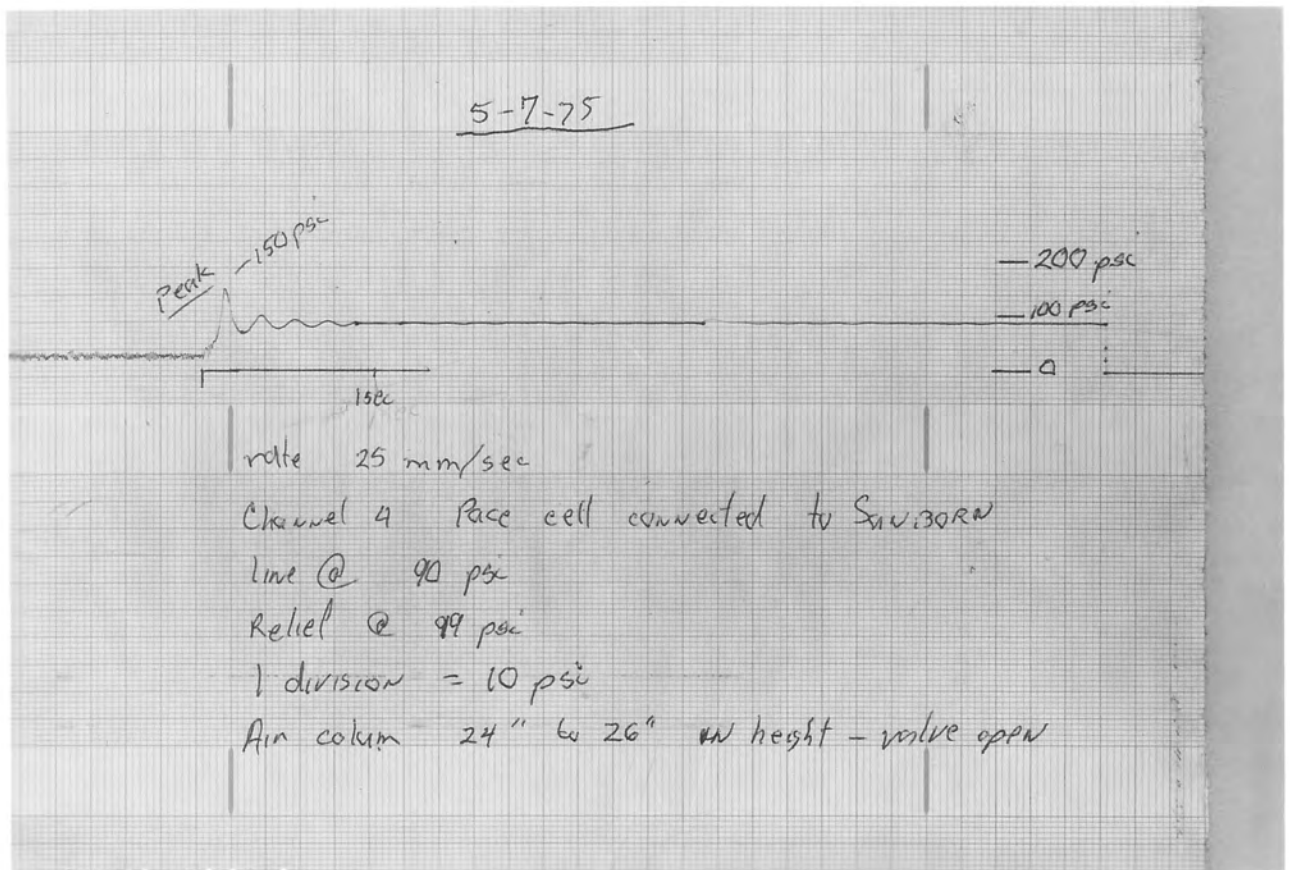 5-7-75
Peak - 150 psi
— 200 psi
— 100 psi
— 0
1 sec
rate 25 mm/sec
Channel 4 Pace cell connected to SANBORN
line @ 90 psi
Relief @ 99 psi
1 division = 10 psi
Air colum 24" to 26" in height - valve open